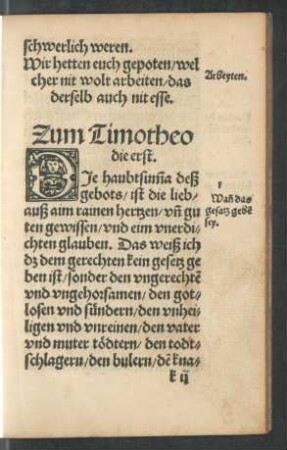 schwerlich weren.
Wir hetten euch gepoten/wel
cher nit wolt arbeiten/das
derselb auch nit esse.
Arbeyten.
Zum Timotheo
die erst.
DIe haubtsum̃a deß
gebots/ist die lieb/
auß aim rainen hertzen/vn̄ gu
ten gewissen/vnd eim vnerdi-
chten glauben. Das weiß ich
dz dem gerechten kein gesetz ge
ben ist/sonder den vngerechtē
vnd vngehorsamen/den got-
losen vnd sündern/den vnhei-
ligen vnd vnreinen/den vater
vnd muter tödtern/den todt-
schlagern/den bulern/dē kna-
k ij
1
Wañ das
gesatz gebē
sey.